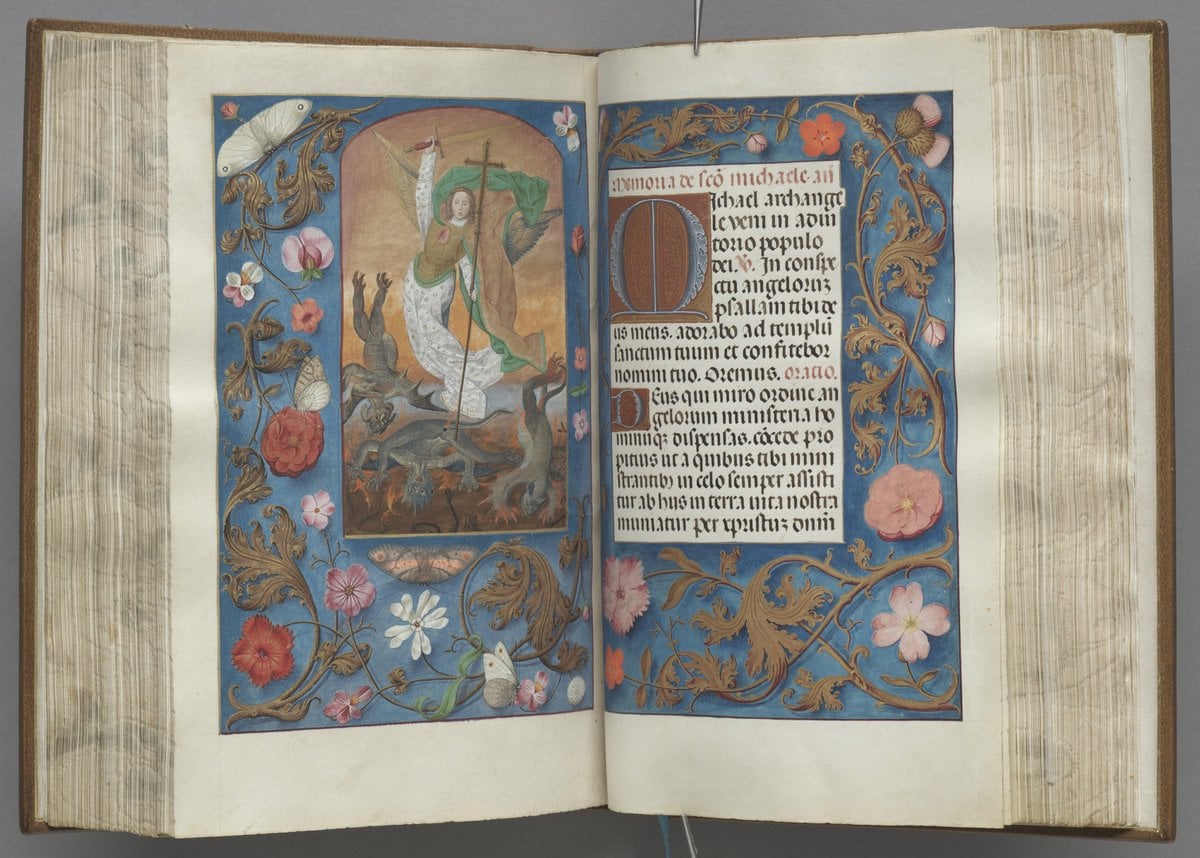 168
Memoria de scō michaele· añ
Michael archange
le veni in adiu
torio populo
dei. v̄. In conspe
ctu angeloruz
psallam tibi de
us meus. adorabo ad templū
sanctum tuum et confitebor
nomini tuo. Oremus. oratio.
Deus qui miro ordine an
gelorum ministeria ho
minūqz dispensas. cōcede pro
pitius ut a quibus tibi mini
strantibz in celo semper assisti
tur ab hiis in terra uita nostra
muniatur per xpristuz dnm̄